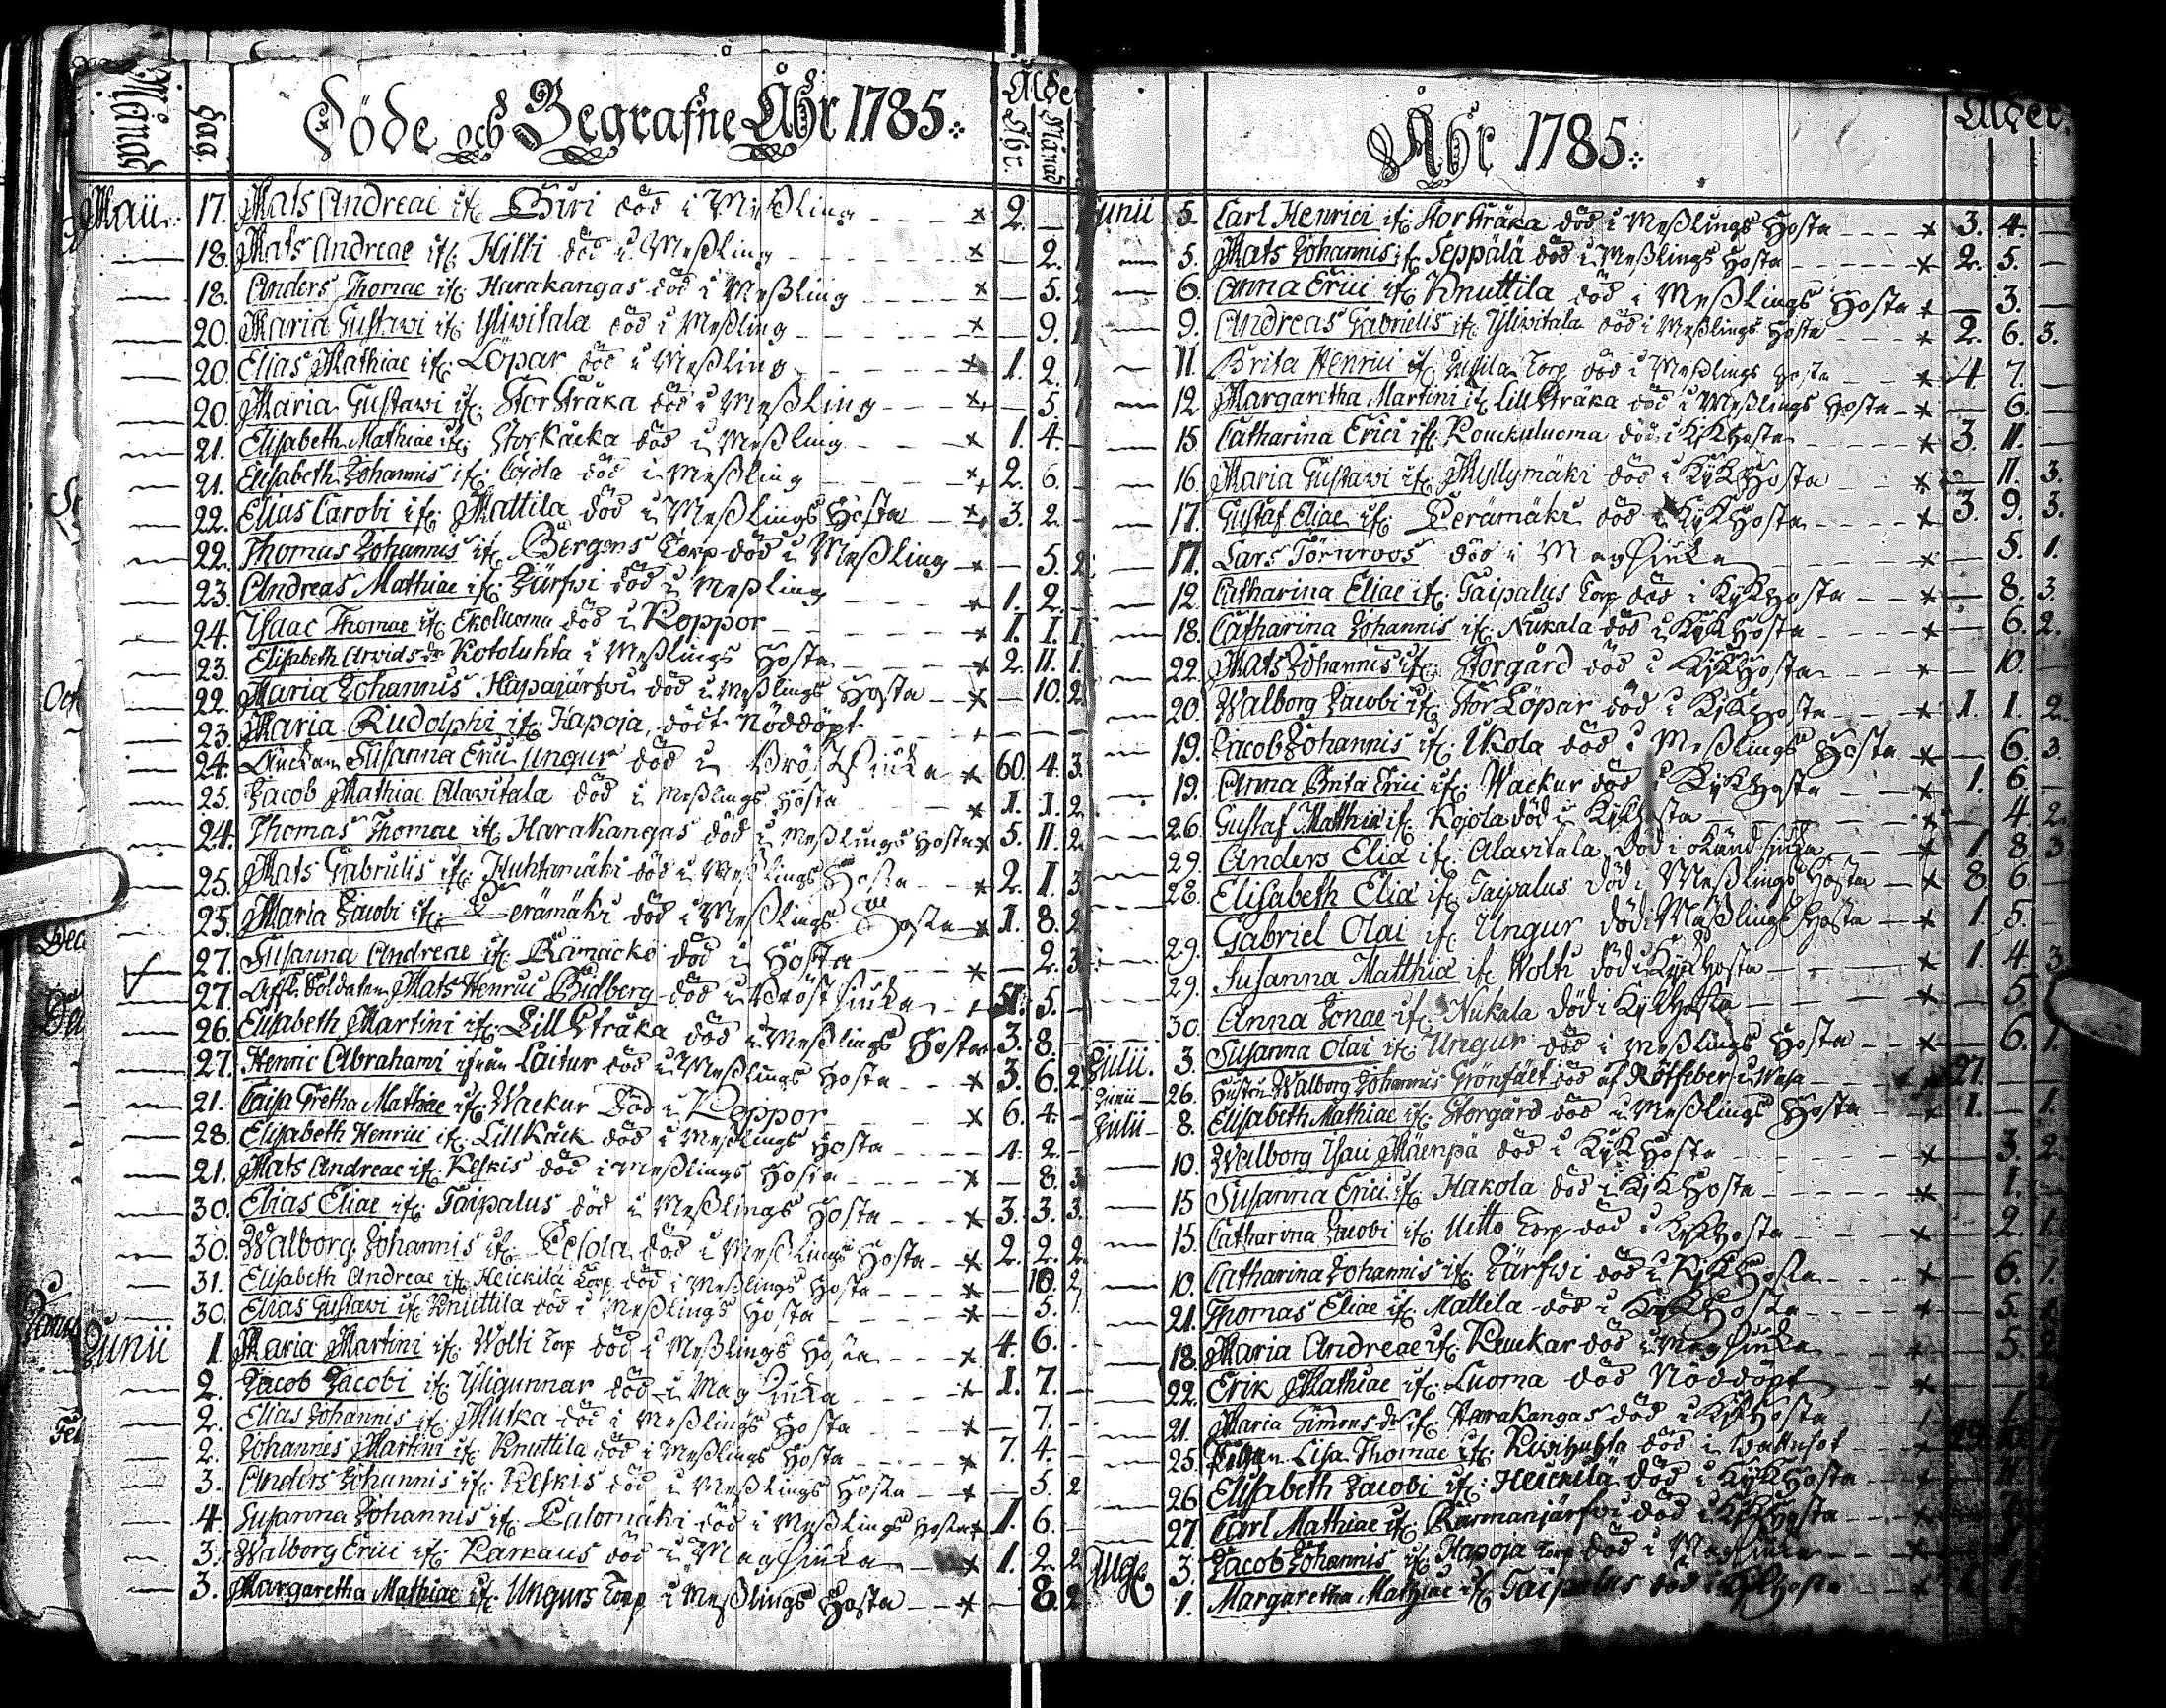 Månad Daga Döde och Begrafne Åhr 1785 Ålder Åhr Månad
Maii 17. Mats Andreae if. Biri död i Meßling 2.
18. Mats Andreae if. Hilli död i Meßling 2.
18. Anders Thomae if. Harakangas död i Meßling 5.
20. Maria Gustavi if. Yliwitala död i Meßling 9. 1
20. Elias Mathiae if. Löpar död i Meßling 1. 2.
20. Maria Gustawi if. Storstråka död i Meßling 5. 1
21. Elisabeth Mathiae if. Storkacka död i Meßling 1. 4.
21. Elisabeth Johannis if. Cojola död i Meßling 2. 6.
22. Elias Carobi if. Mattila död i Meßlings Hosta 3. 2.
22. Thomas Johannis if. Bergens Torp död i Meßling 5. 2.
23. Andreas Mathiae if. Järfwi död i Meßling 1. 2.
24. Isaac Thomae if. Ekoluoma död i Koppor 1. 1. 1.
23. Elisabeth Arvids dr Kotoluhta i Meßlings Hosta 2. 11. 1.
22. Maria Johannis Hapajärfwi död i Meßlings Hosta 10. 2.
23. Maria Rudolphi if. Hapoja, död Nöddöpt
24. Änckan Susanna Erici Ungur död i Brösts​iuka 60. 4. 3.
25. Jacob Mathiae Alavitala död i Meßlings Hosta 1. 1. 2.
24. Thomas Thomae if. Harakangas död i Meßlings Hosta 5. 11. 2.
25. Mats Gabrielis if. Huhtamäki död i Meßlings Hosta 2. 1. 3
25. Maria Jacobi if. Perämäki död i Meßlings Hosta 1. 8. 2
27. Susanna Andreae if. Rämäcko död i Hosta 2. 3
27. Afsk. Soldaten Mats Henrici Bidberg död i Bröstsiuka 51. 5.
26. Elisabeth Martini if. Lillstråka död i Meßlings Hosta 3. 8.
27. Henric Abrahami ifrån Laitur död i Meßlings Hosta 3. 6. 2.
21. Caisa Gretha Mathiae if. Wackur Död i Koppor 6. 4.
28. Elisabeth Henrici if. Lillkack död i Meßlings Hosta 4. 2.
21. Mats Andreae if. Keskis död i Meßlings Hosta 8. 3
30. Elias Eliae if. Taipalus död i Meßlings Hosta 3. 3. 3.
30. Walborg Johannis if. Pelola död i Meßlings Hosta 2. 2. 2.
31. Elisabeth Andreae if. Heickilä Torp död i Meßlings Hosta 10. 2
30. Elias Gustawi if. Knuttila död i Meßlings Hosta 5. 1
Junii 1. Maria Martini if. Wolti Torp död i Meßlings Hosta 4. 6.
2. Jacob Jacobi if. Yligunnar död i Magsiuka 1. 7.
2. Elias Johannis if. Mutka död i Meßlings Hosta 7.
2. Johannis Martini if. Knuttila död i Meßlings Hosta 7. 4.
3. Anders Johannis if. Keskis död i Meßlings Hosta 5. 2
4. Susanna Johannis if. Palomäki död i Meßlings Hosta 1. 6.
3. Walborg Erici if. Karkaus död i Magsiuka 1. 2. 2
3. Margaretha Mathiae if. Ungurs Torp i Meßlings Hosta 8. 2
Åhr 1785 Ålder
Junii 5. Carl Henrici if. Storstråka död i Meßlings Hosta 3. 4.
5. Mats Johannis if. Seppälä död i Meßlings Hosta 2. 5.
6. Anna Erici if. Knuttila död i Meßlings Hosta 3.
9. Andreas Gabrielis if. Yliwitala död i Meßlings Hosta 2. 6. 3.
11. Brita Henrici if. Torp död i Meßlings Hosta 4 7.
12 Margaretha Martini if. Lillstråka död i Meßlings Hosta 6.
15 Catharina Erici if. Kouckuluoma död i KikHosta 3. 11.
16. Maria Gustavi if. Myllymäki död i KikHosta 11. 3.
17. Gustaf Eliae if. Perämäki död i KikHosta 3. 9. 3.
17. Lars Törnroos död i Magsiuka 5. 1.
12 Catharina Eliae if. Taipalus Torp död i KikHosta 8. 3
18. Catharina Johannis if. Nukala död i KikHosta 6. 2.
22. Mats Johannis if. Storgård död i KikHosta 10.
20. Walborg Jacobi if. Stor Löpar död i KikHosta 1. 1. 2.
19. Jacob Johannis if. Ukola död i Meßlings Hosta 6. 3
19. Anna Brita Erici if. Wackur död i KikHosta 1. 6.
26. Gustaf Matthiæ if. Kojola död i KikHosta 4. 2.
29. Anders Eliæ if. Alavitala Död i okänd siuka 1 8. 3
28. Elisabeth Eliæ if. Taipalus Död i Meßlings Hosta 8 6
29. Gabriel Olai if. Ungur död i Mäßlings Hosta 1. 5.
29. Susanna Matthiæ if. Wolti Död i KikHosta 1. 4. 3
30. Anna Jonae if. Nukala Död i KikHosta 5
Julii. 3. Susanna Olai if. Ungur död i Meßlings Hosta 6. 1.
Junii 26. Hustru Walborg Johannis Grönfält död af Rötfeber i Wasa 27.
Julii 8. Elisabeth Mathiae if. Storgård död i Meßlings Hosta 1. 1.
10. Walborg Isaci Mäenpä död i KikHosta 3. 2.
15 Susanna Erici if. Hakola död i KikHosta 1.
15. Catharina Jacobi if. Uitto Torp död i KikHosta 2. 1.
10. Catharina Johannis if. Järfwi död i KikHosta 6. 1.
21. Thomas Eliae if. Mattila död i KikHosta 5. 1
18. Maria Andreae if. Kaukar död i Magsiuka 5. 2
22. Erik Mathiae if. Luoma död Nöddöpt
21. Maria Simons dr if. Harakangas död i KikHosta
25. Pigan Lisa Thomae if. Kiwihuhta död i Wattusot
26. Elisabeth Jacobi if. Heickilä död i KikHosta
27. Carl Mathiae if. Karmanjärfwi död i KikHosta
Aug. 3. Jacob Johannis if. Hapoja Torp död i Magsiuka
1. Margaretha Mathiae if. Taipalus död i KikHosta